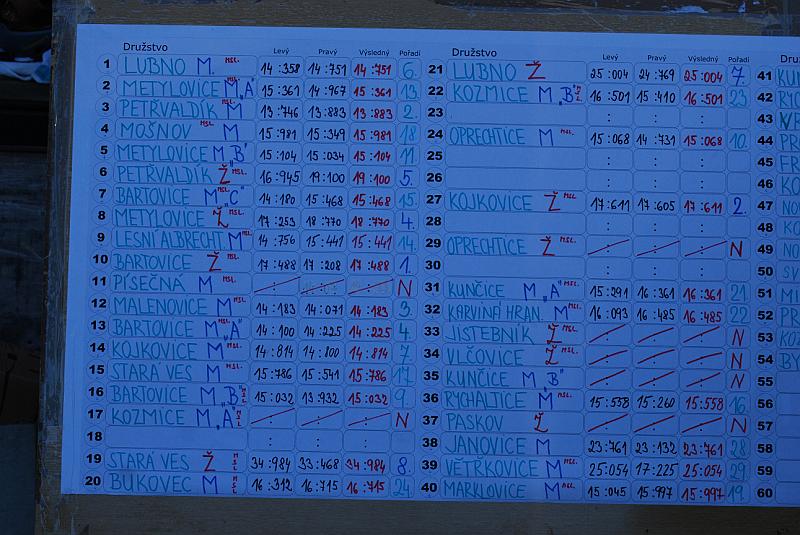 Družstvo Levý Pravý Výsledný Pořadí
1 LUBNO M. MSL. 14:358 14:751 14:751 6.
2 METYLOVICE M„A" 15:361 14:967 15:361 13.
3 PETŘVALDÍK M MSL. 13:746 13:883 13:883 2.
4 MOŠNOV MSL. M 15:981 15:349 15:981 18
5 METYLOVICE M B" 15:104 15:034 15:104 11.
6 PETŘVALDÍK Ž MSL. 16:945 19:100 19:100 5.
7 BARTOVICE M„C" MSL. 14:180 15:468 15:468 15.
8 METYLOVICE Ž MSL. 17:253 18:770 18:770 4.
9 LESNÍ ALBRECHT. M MSL. 14:756 15:441 15:441 14.
10 BARTOVICE Ž MSL. 17:488 17:208 17:488 1.
11 PÍSEČNÁ M MSL. : : : N
12 MALENOVICE M MSL. 14:183 14:071 14:183 3.
13 BARTOVICE M„A" MSL. 14:100 14:225 14:225 4.
14 KOJKOVICE M MSL. 14:814 14:100 14:814 7.
15 STARÁ VES M MSL. 15:786 15:541 15:786 17
16 BARTOVICE M„B" MSL 15:032 13:932 15:032 9.
17 KOZMICE M„A" MSL : : : N
18 : : :
19 STARÁ VES Ž MSL 34:984 33:468 34:984 8.
20 BUKOVEC M MSL 16:312 16:715 16:715 24.
Družstvo Levý Pravý Výsledný Pořadí
21 LUBNO Ž MSL. 25:004 24:769 25:004 7.
22 KOZMICE M„B" MSL 16:501 15:410 16:501 23.
23 : : :
24 OPRECHTICE M MSL. 15:068 14:731 15:068 10.
25 : : :
26 : : :
27 KOJKOVICE Ž MSL. 17:611 17:605 17:611 2.
28 : : :
29 OPRECHTICE Ž MSL. : : : N
30 : : :
31 KUNČICE M„A" MSL. 15:291 16:361 16:361 21
32 KARVINÁ HRAN. M MSL. 16:093 16:485 16:485 22
33 JISTEBNÍK Ž MSL. : : : N
34 VLČOVICE Ž MSL. : : : N
35 KUNČICE M„B" : : : N
36 RYCHALTICE M MSL. 15:558 15:260 15:558 16.
37 PASKOV Ž : : : N
38 JANOVICE M 23:761 23:132 23:761 28
39 VĚTŘKOVICE M MSL. 25:054 17:225 25:054 29.
40 MARKLOVICE M MSL. 15:045 15:997 15:997 19.
41
42
43
44
45
46
47
48
49
50
51
52
53
54
55
56
57
58
59
60